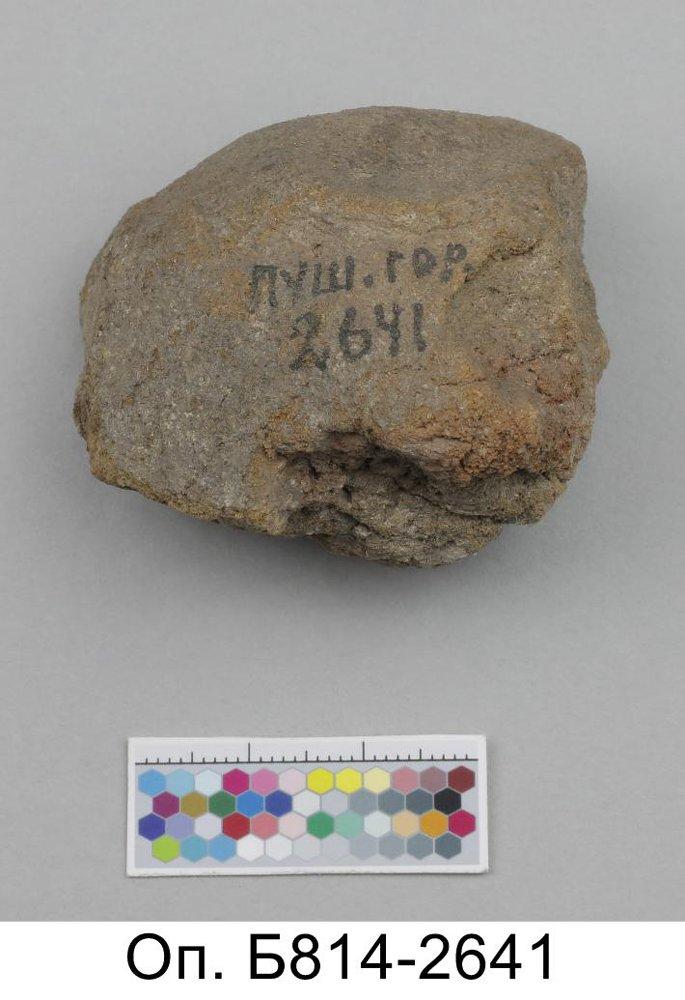 ПУШ. ГОР.
2641
Оп. Б814-2641